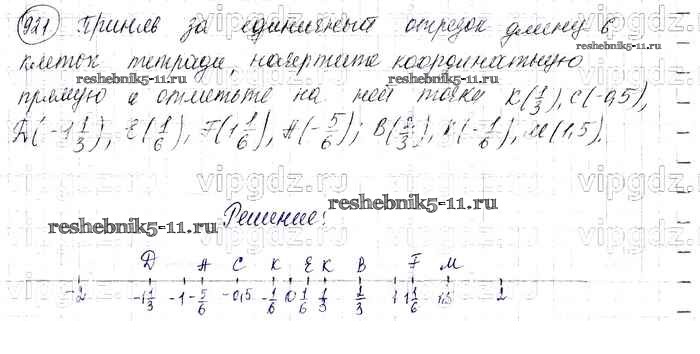 921 Приняв за единичный отрезок длину 6
клеток тетради, начертите координатную
прямую и отметьте на ней точки K(1/3), C(-0,5),
D(-1 1/3), E(1/6), F(1 1/6), A(-5/6); B(2/3), K(-1/6), M(1,5).
Решение:
D A C K E K B F M
-2 -1 1/3 -1 -5/6 -0,5 -1/6 0 1/6 1/3 2/3 1 1 1/6 1,5 2
reshebnik5-11.ru
reshebnik5-11.ru
reshebnik5-11.ru
reshebnik5-11.ru
vipgdz.ru
vipgdz.ru
vipgdz.ru
vipgdz.ru
vipgdz.ru
vipgdz.ru